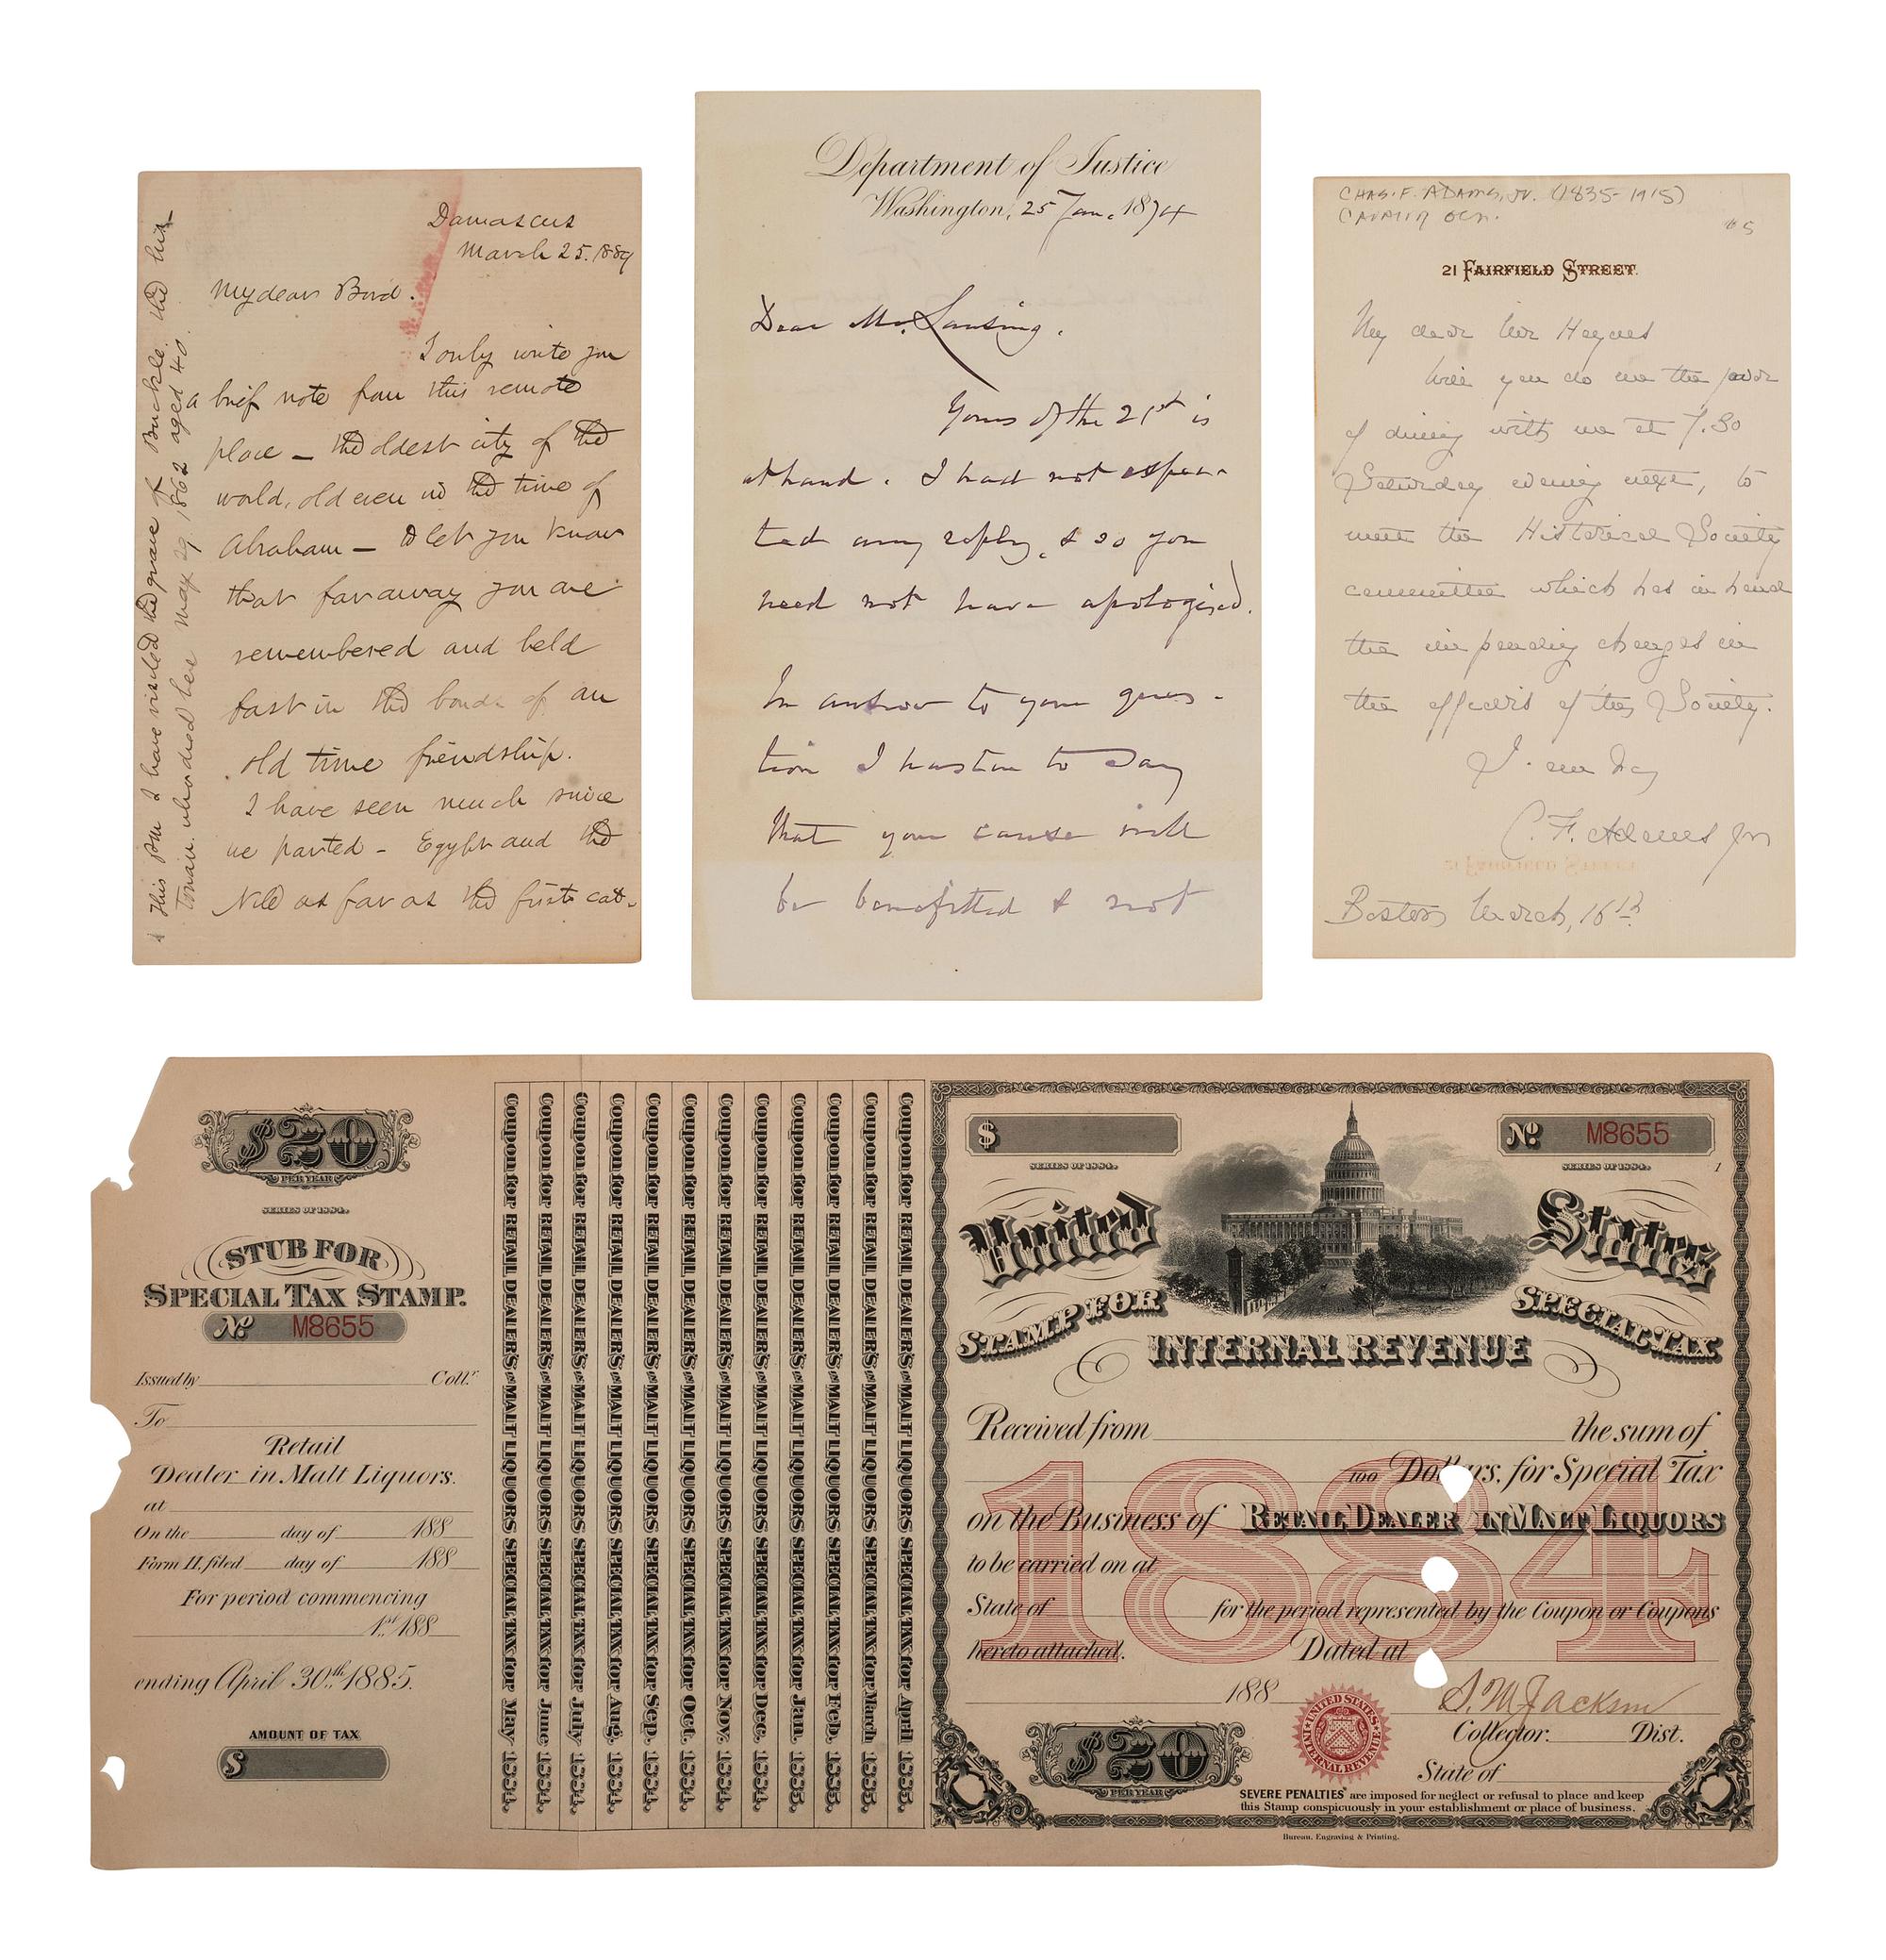 Damascus
March 25. 1889
My dear Bord.
I only write you
a brief note from this remote
place — the oldest city of the
world, old even in the time of
Abraham — to let you know
that far away you are
remembered and held
fast in the bonds of an
old time friendship.
I have seen much since
we parted — Egypt and the
Nile as far as the first cat-
This Pm I have visited the grave of Buckle. the his-
torian. who died here May 29 1862 aged 40.
Department of Justice
Washington, 25 Jan. 1874
Dear Mr. Lansing.
Yours of the 21st is
at hand. I had not expec-
ted any reply, & so you
need not have apologised.
In answer to your ques-
tion I hasten to say
that your cause will
be benefitted & not
CHAS. F. ADAMS, JR. (1835-1915)
CAVALRY
#5
21 FAIRFIELD STREET.
My dear Mr Haynes
Will you do me the favor
of dining with me at 7.30
Saturday evening next, to
meet the Historical Society
committee which has in hand
the impending changes in
the officers of the Society.
I am &c
C. F. Adams Jr
21 FAIRFIELD STREET
Boston March, 16th
$20
PER YEAR
SERIES OF 1884.
STUB FOR
SPECIAL TAX STAMP.
No. M8655
Issued by Coll.r
To
Retail
Dealer in Malt Liquors.
at
On the day of 188
Form 11, filed day of 188
For period commencing
1st 188
ending April 30th, 1885.
AMOUNT OF TAX
$
Coupon for RETAIL DEALER'S in MALT LIQUORS SPECIAL TAX for May 1884.
Coupon for RETAIL DEALER'S in MALT LIQUORS SPECIAL TAX for June 1884.
Coupon for RETAIL DEALER'S in MALT LIQUORS SPECIAL TAX for July 1884.
Coupon for RETAIL DEALER'S in MALT LIQUORS SPECIAL TAX for Aug. 1884.
Coupon for RETAIL DEALER'S in MALT LIQUORS SPECIAL TAX for Sep. 1884.
Coupon for RETAIL DEALER'S in MALT LIQUORS SPECIAL TAX for Oct. 1884.
Coupon for RETAIL DEALER'S in MALT LIQUORS SPECIAL TAX for Nov. 1884.
Coupon for RETAIL DEALER'S in MALT LIQUORS SPECIAL TAX for Dec. 1884.
Coupon for RETAIL DEALER'S in MALT LIQUORS SPECIAL TAX for Jan. 1885.
Coupon for RETAIL DEALER'S in MALT LIQUORS SPECIAL TAX for Feb. 1885.
Coupon for RETAIL DEALER'S in MALT LIQUORS SPECIAL TAX for March 1885.
Coupon for RETAIL DEALER'S in MALT LIQUORS SPECIAL TAX for April 1885.
$ No. M8655
SERIES OF 1884. SERIES OF 1884. 1
United States
STAMP FOR SPECIAL TAX
INTERNAL REVENUE
Received from the sum of
100 Dollars, for Special Tax
on the Business of RETAIL DEALER IN MALT LIQUORS
to be carried on at
State of for the period represented by the Coupon or Coupons
hereto attached. Dated at
1884
188 S. M Jackson
UNITED STATES INTERNAL REVENUE
Collector. Dist.
State of
$20
PER YEAR
SEVERE PENALTIES are imposed for neglect or refusal to place and keep
this Stamp conspicuously in your establishment or place of business.
Bureau, Engraving & Printing.